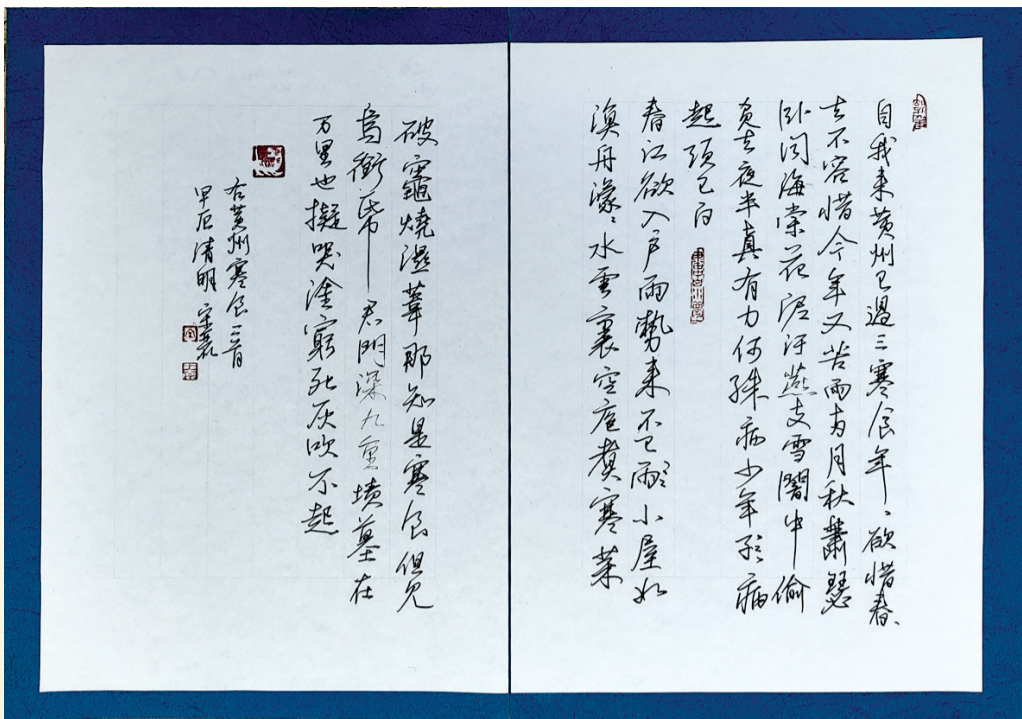 自我来黄州已過三寒食年〻欲惜春〻
去不容惜今年又苦雨兩月秋蕭瑟
卧聞海棠花泥汙燕支雪闇中偷
負去夜半真有力何殊病少年子病
起頭已白
春江欲入户雨勢来不已雨小屋如
漁舟濛〻水雲裏空庖煮寒菜
破竈燒濕葦那知是寒食但見
烏銜帋君門深九重墳墓在
万里也擬哭塗窮死灰吹不起
右黄州寒食二首
甲辰清明